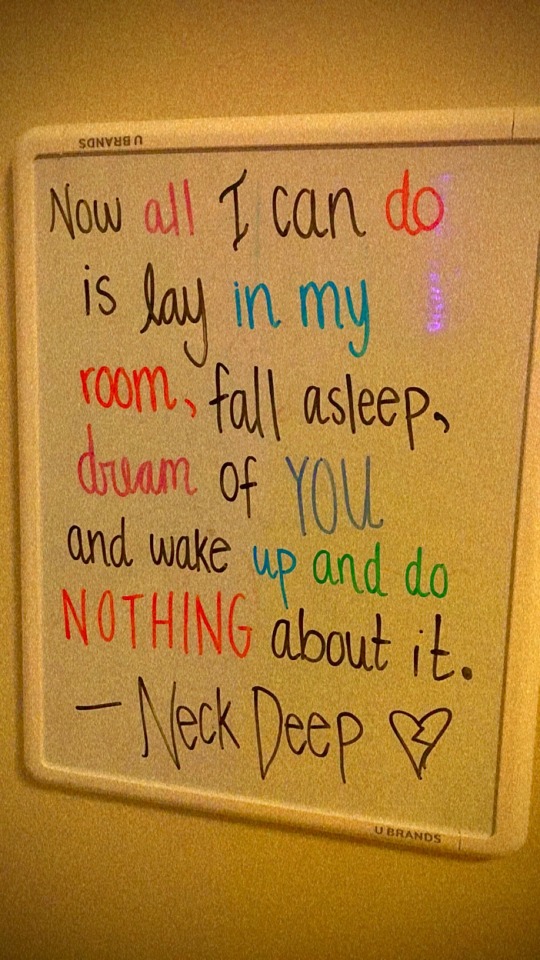 U BRANDS
Now all I can do
is lay in my
room, fall asleep,
dream of YOU
and wake up and do
NOTHING about it.
— Neck Deep
U BRANDS